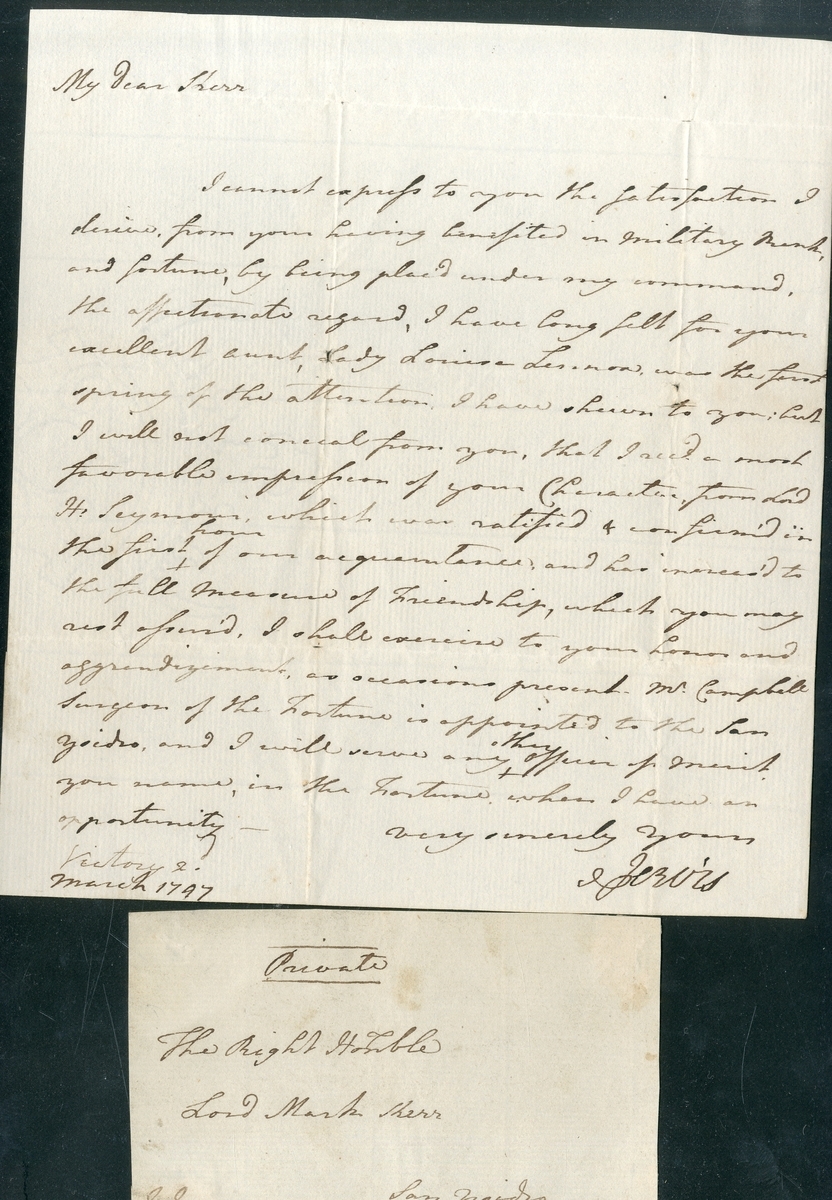 My Dear Kerr
I cannot express to you the satisfaction I
derive, from your having benefited in Military Rank,
and fortune, by being plac'd under my command,
the affectionate regard, I have long felt for your
excellent aunt, Lady Louisa Lennox, was the first
spring of the attention, I have shewn to you; but
I will not conceal from you, that I rec'd a most
favorable impression of your Character, from Lord
H. Seymour, which was ratified & confirm'd in
the first hour of our acquaintance, and has increas'd to
the full Measure of Friendship, which you may
rest assur'd, I shall exercise to your honor and
aggrandizement, as occasions present. Mr. Campbell
Surgeon of the Fortune is appointed to the San
Ysidro, and I will serve any other officer of merit
you name, in the Fortune, when I have an
opportunity —
very sincerely Yours
J Jervis
Victory 2.
March 1797
Private
The Right Honble
Lord Mark Kerr
San Ysidro